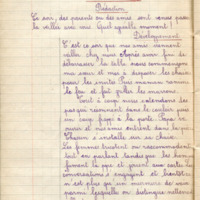 Rédaction
Ce soir, des parents ou des amis sont venus passer
la veillée avec vous. Quel agréable moment !
Développement
C'est ce soir que mes amis viennent
veiller chez nous. Après avoir fini de
débarrasser la table nous commençons
ma sœur et moi à disposer les chaises
pour les invités. Puis maman ranime
le feu et fait griller les marrons.
Tout à coup nous entendons des
pas qui résonnent dans le couloir puis
un coup frappé à la porte. Papa va
ouvrir et nos amis entrent dans la
Chacun s'installe sur sa chaise.
Les femmes tricotent ou raccommodent
tout en parlant tandis que les hommes
fument la pipe et jouent aux cartes. Les
conversations s'engagent et bientôt
n'est plus qu'un murmure de voix
parmi lesquelles on distingue nettement